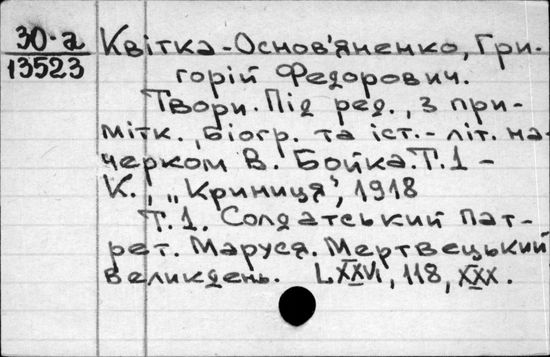 30-а Квітка-Основ'яненко, Гри-
13523 горій Федорович.
Твори. Під ред., з при-
мітк., біогр. та іст.-літ. на-
черком В. Бойка. Т.1 –
К., „Криниця", 1918
Т.1. Солдатський пат-
рет. Маруся. Мертвецький
великдень. LXXVI, 118, XXX.